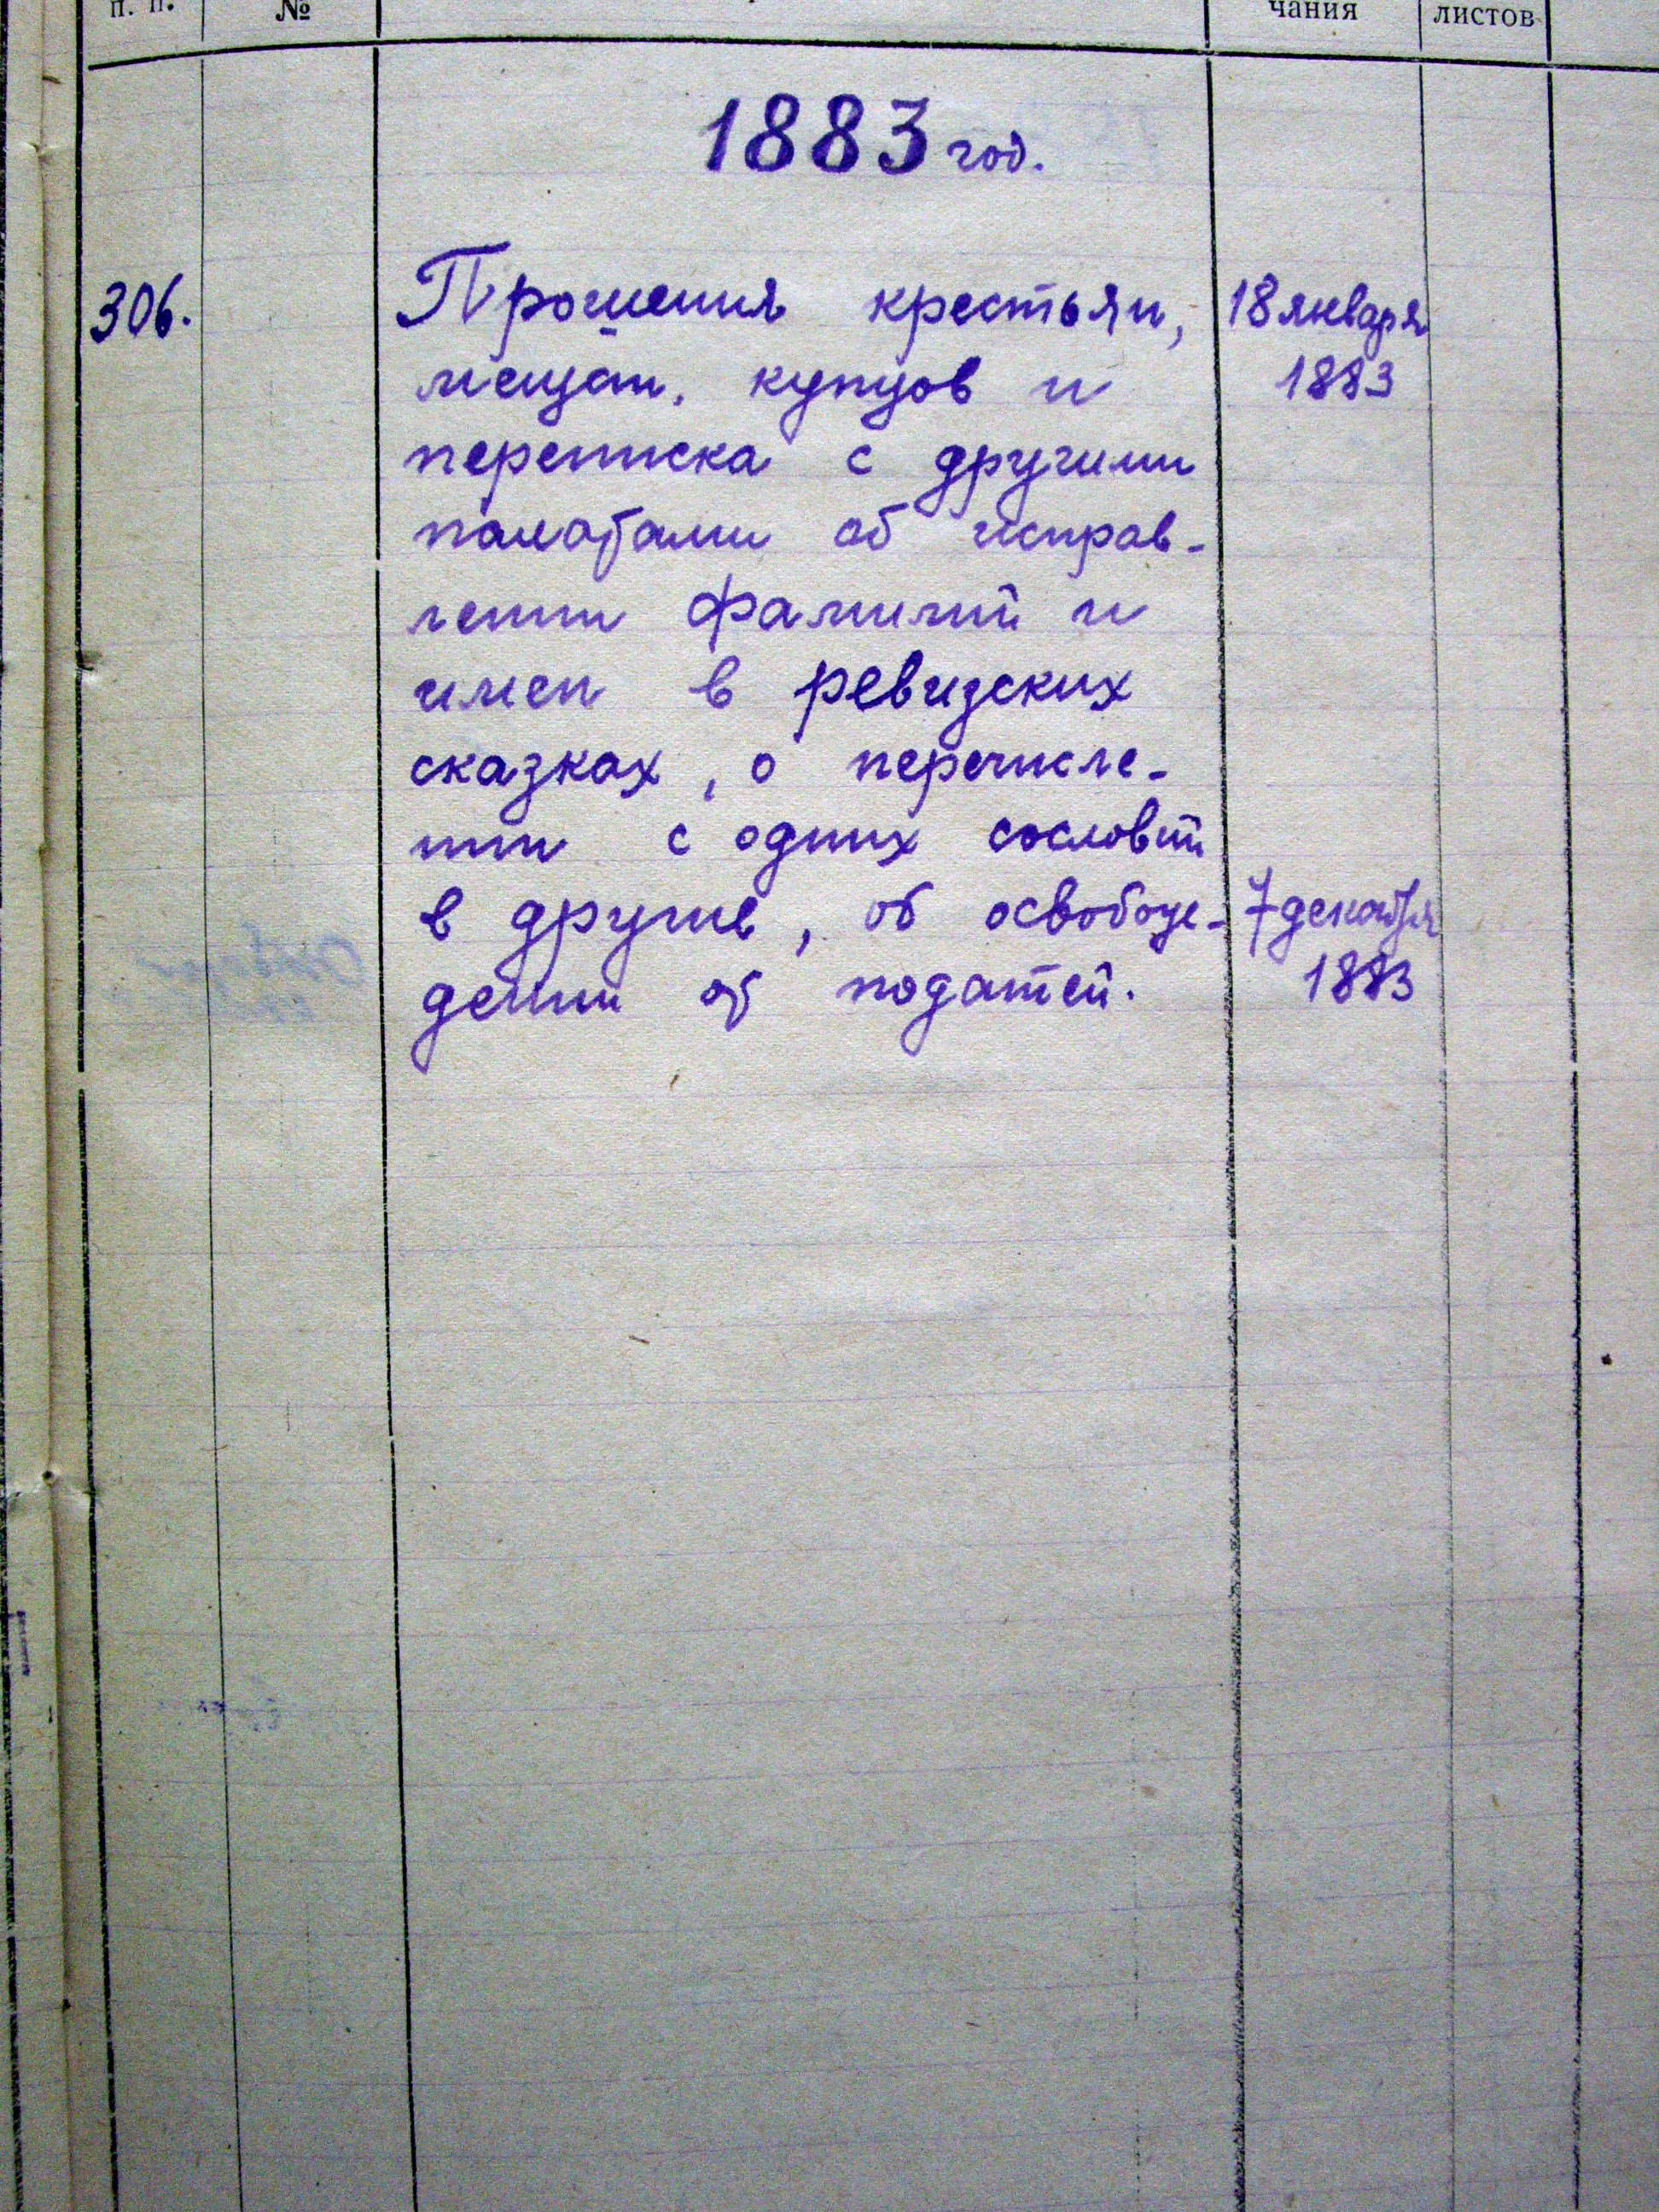 п. п.
№
чания
листов
1883 год.
306.
Прошения крестьян,
мещан, купцов и
переписка с другими
палатами об исправ-
лении фамилий и
имен в ревизских
сказках, о перечисле-
нии с одних сословий
в другие, об освобож-
дении от податей.
18 января
1883
7 декабря
1883